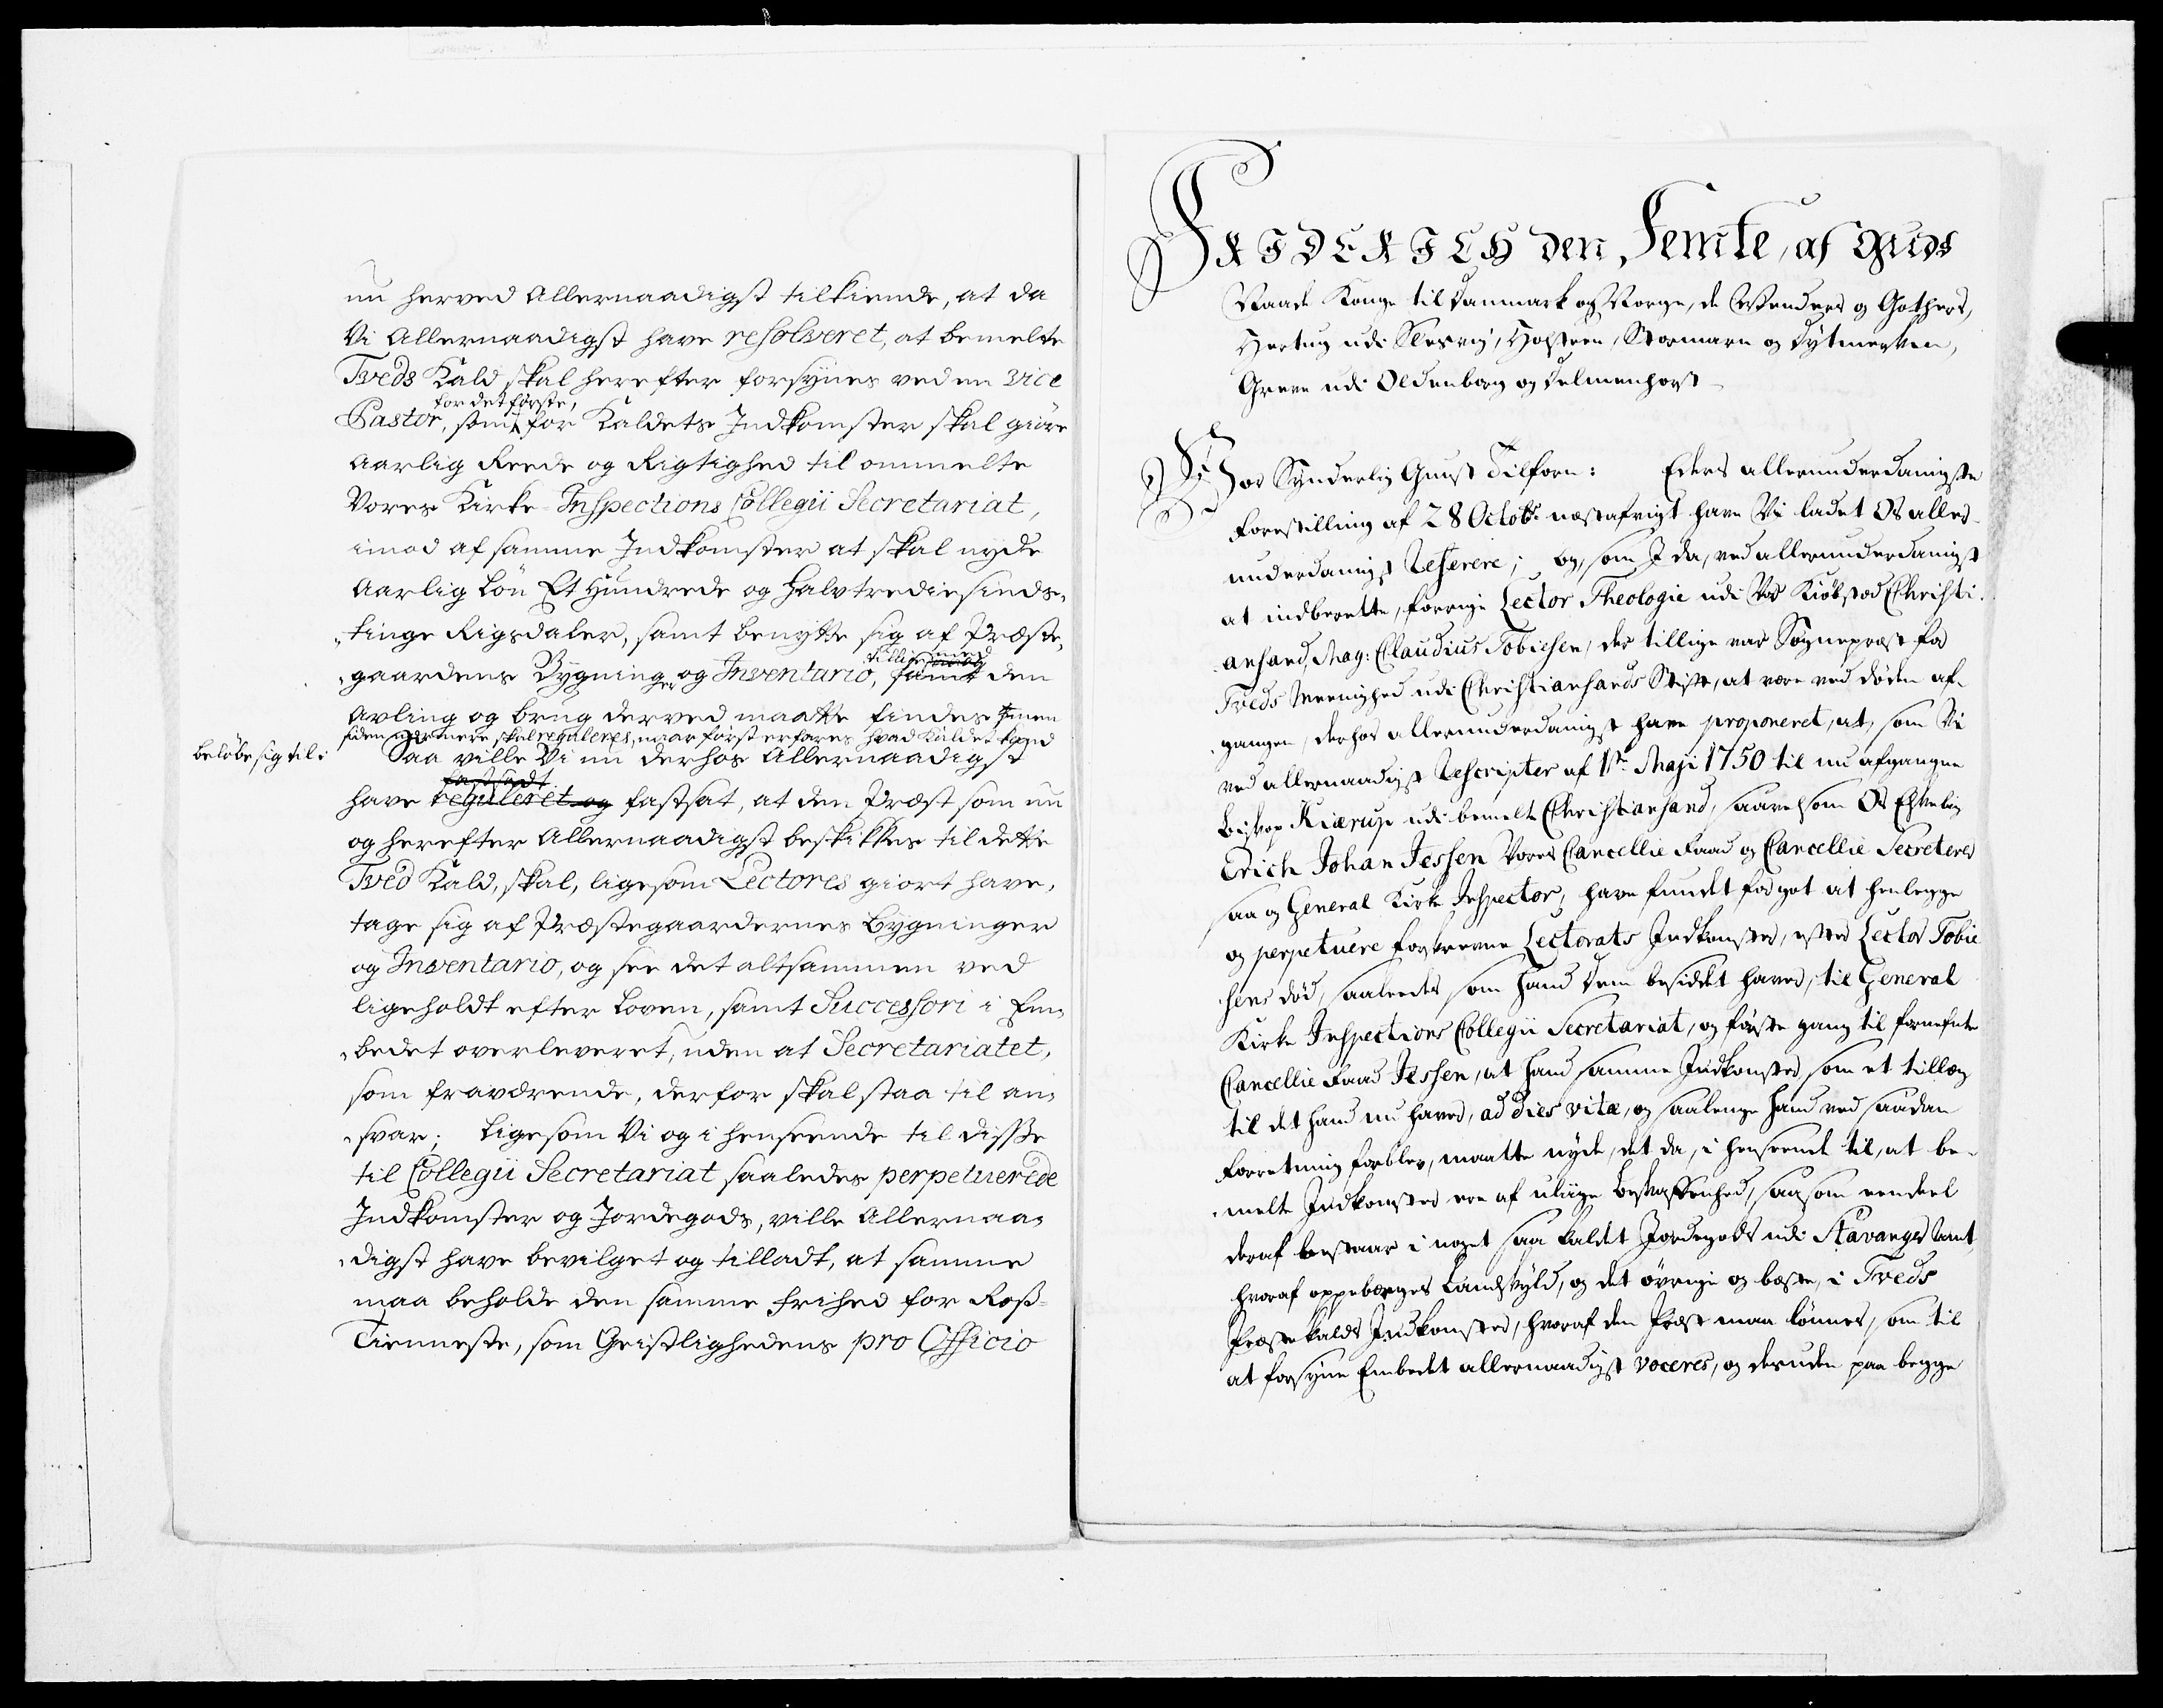 nu herved Allernaadigst tilkiende, at da
Vi Allernaadigst have resolveret, at bemelte
Tveds Kald skal herefter forsynes ved en vice
for det første,
Pastor, som for Kaldets Indkomster skal giøre
aarlig Reede og Rigtighed til ommelte
Vores Kirke-Inspections Collegii Secretariat,
imod af samme Indkomster at skal nyde
aarlig Løn Et Hundrede og Halvtrediesinds-
tinge Rigsdaler, samt benytte sig af Præste-
tillige med
gaardens Bygninger og Inventario, samt den
Avling og brug derved maatte findes men
siden nærmere skal reguleres, naar først erfares hvad Kaldet kand
beløbe sig til:
Saa ville Vi nu derhos Allernaadigst
fastsadt
have reguleret og fastsat, at den Præst som nu
og herefter Allernaadigst beskikkes til dette
Tved Kald, skal, ligesom Lectores giort have,
tage sig af Præstegaardernes Bygninger
og Inventario, og see det altsammen ved
ligeholdt efter Loven, samt Successori i Em-
bedet overleveret, uden at Secretariatet,
som fraværende, derfor skal staa til an-
svar; Ligesom Vi og i henseende til disse
til Collegii Secretariat saaledes perpetuerede
Indkomster og Jordegods, ville Allernaa-
digst have bevilget og tilladt, at samme
maa beholde den samme frihed for Ross-
Tienneste, som Geistlighedens pro Officio
FRIDERICH den Femte, af Guds
Naade Konge til Danmark og Norge, de Wenders og Gothers,
Hertug udi Slesvig, Holsteen, Stormarn og Dytmersken,
Greve udi Oldenborg og Delmenhorst
Vor Synderlig Gunst Tilforn: Eders allerunderdanigste
Forestilling af 28 Octobr næstafvigt have Vi ladet Os aller-
underdanigst Referere; og, som I da, ved allerunderdanigst
at indberette, forrige Lector Theologiæ udi Vor Kiøbstad Christi-
ansand, Mag: Claudius Tobiesen, der tillige var Sognepræst for
Tveds Meenighed udi Christiansands Stift, at være ved døden af-
gangen, derhos allerunderdanigst have proponeret, at, som Vi
ved allernaadigst Rescripter af 1ste Maji 1750 til nu afgangne
Biskop Kiærup udi bemelte Christiansand, saavelsom Os Elskelig
Erich Johan Jessen Vores Cancellie Raad og Cancellie Secreterer
saa og General Kirke Inspector, have fundet for got at henlegge
og perpetuere forskrevne Lectorats Indkomster, efter Lector Tobie
sens død, saaledes som hand dem besiddet haver, til General
Kirke Inspections Collegii Secretariat, og første gang til fornefnte
Cancellie Raad Jessen, at hand samme Indkomster som et tillæg
til det hand nu haver, ad dies vitæ, og saalenge hand ved saadan
Forretning forblev, maatte nyde, det da, i henseende til, at be-
melte Indkomster ere af ulige beskaffenhed, saasom eendeel
deraf bestaar i noget saa kaldet Jordegods udi Stavanger Amt,
hvoraf oppebæres Landskyld, og det øvrige og beste, i Tveds
Præstekalds Indkomster, hvoraf den Præst maa lønnes, som til
at forsyne Embedet allernaadigst voceres, og desuden paa begge